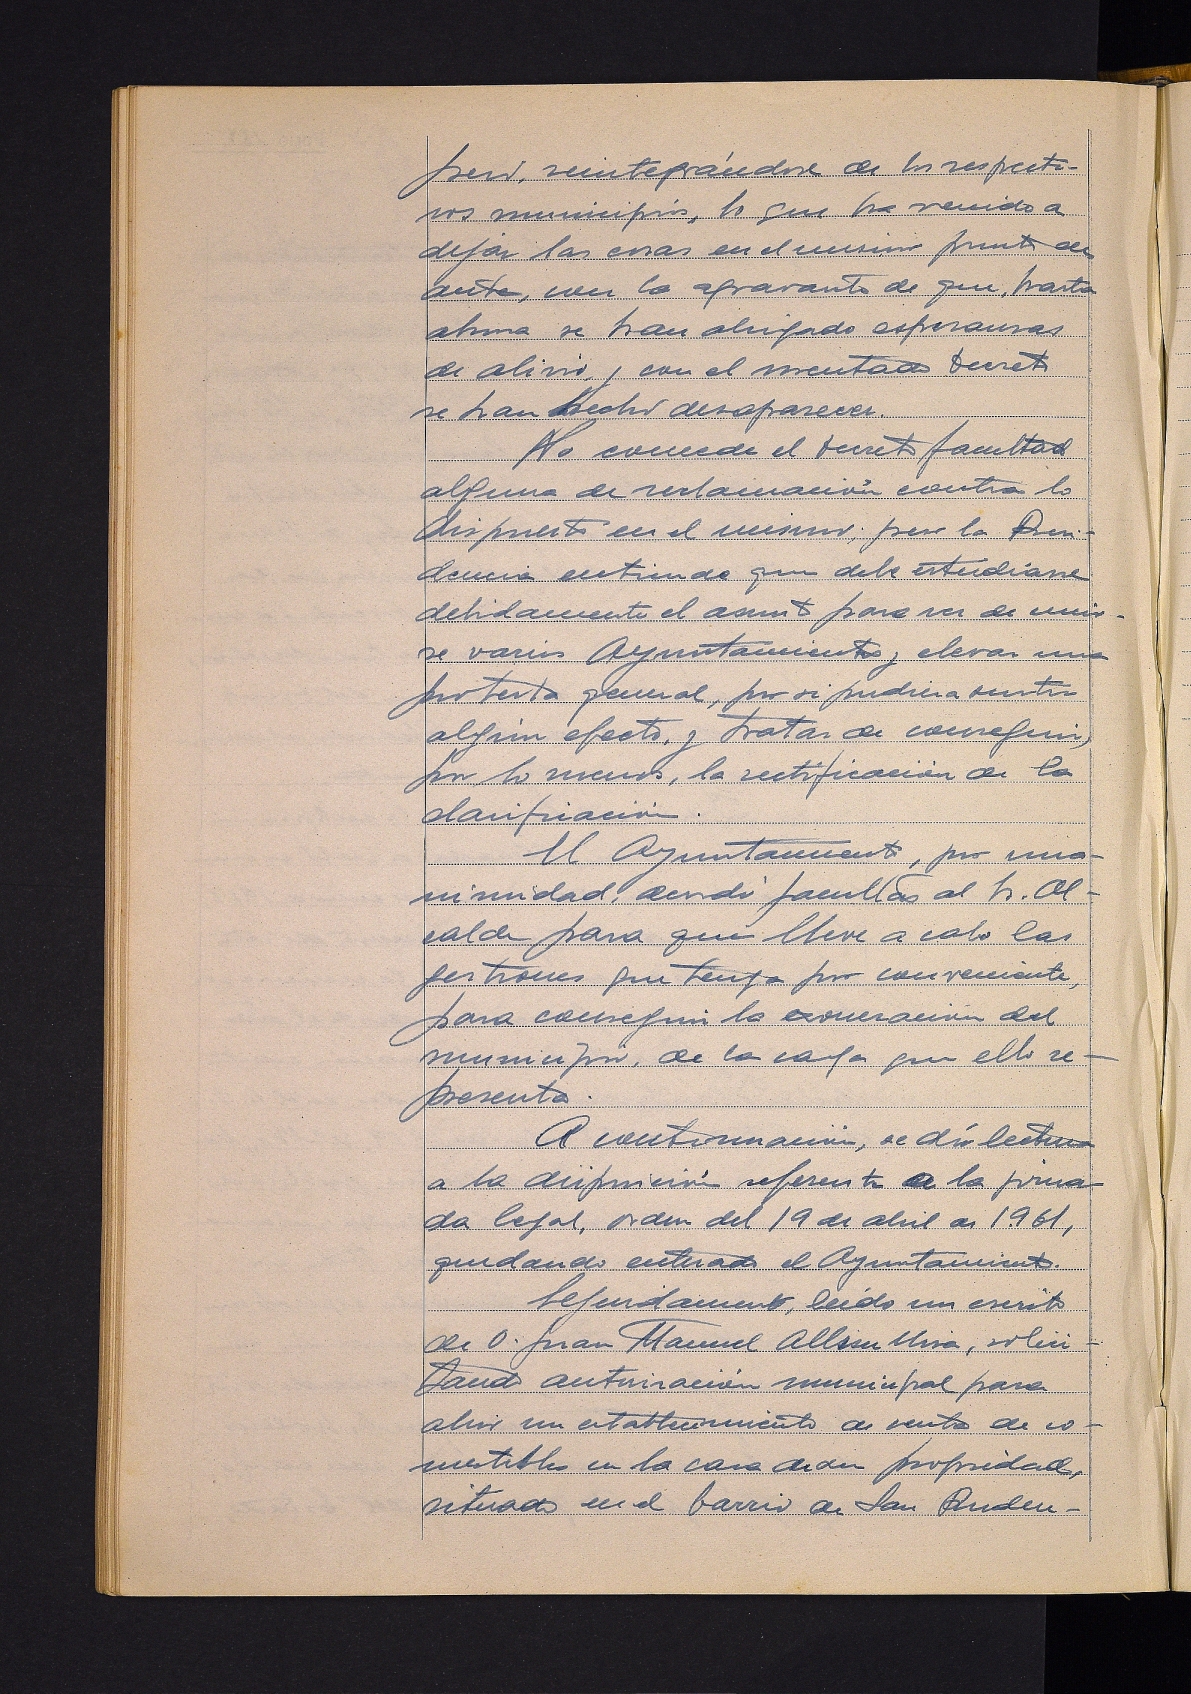 pero, reintegrándose de los respecti-
vos municipios, lo que ha venido a
dejar las cosas en el mismo punto de
antes, con la agravante de que, hasta
ahora se han abrigado esperanzas
de alivio, y con el mentado Decreto
se han hecho desaparecer.
No concede el Decreto facultad
alguna de reclamación contra lo
dispuesto en el mismo; pero la Presi-
dencia entiende que debe estudiarse
debidamente el asunto para ver de unir-
se varios Ayuntamientos y elevar una
protesta general, por si pudiera surtir
algún efecto, y tratar de conseguir,
por lo menos, la rectificación de la
clasificación.
El Ayuntamiento, por una-
nimidad, acordó facultar al Sr. Al-
calde para que lleve a cabo las
gestiones que tenga por conveniente,
para conseguir la exoneración del
municipio, de la carga que ello re-
presenta.
A continuación, se dió lectura
a la disposición referente a la jorna-
da legal, orden del 19 de abril de 1.961,
quedando enterado el Ayuntamiento.
Seguidamente, leído un escrito
de D. Juan Manuel, solici-
tando autorización municipal para
abrir un establecimiento de venta de co-
mestibles en la casa de su propiedad,
situado en el barrio de San Pruden-